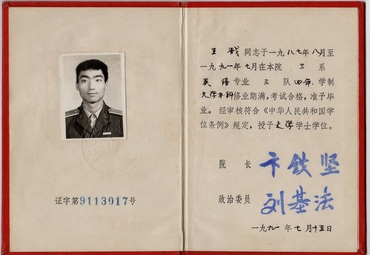 证字第9113917号
王 同志于一九八七年八月至
一九九一年七月在本院 三 系
英语 专业 三 队 四年 学制
大学本科修业期满,考试合格,准予毕
业。经审核符合《中华人民共和国学
位条例》规定,授予文学学士学位。
院 长 卞铁坚
政治委员 刘基法
一九九一年七月十五日